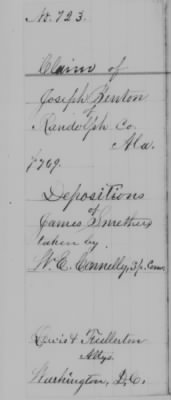 No. 723.
Claim of
Joseph Benton
of
Randolph Co.
Ala.
$769.
Depositions
of
James Smethers
taken by
W. E. Connelly, Sp. Com.
Lewis & Fullerton
Attys.
Washington, D.C.